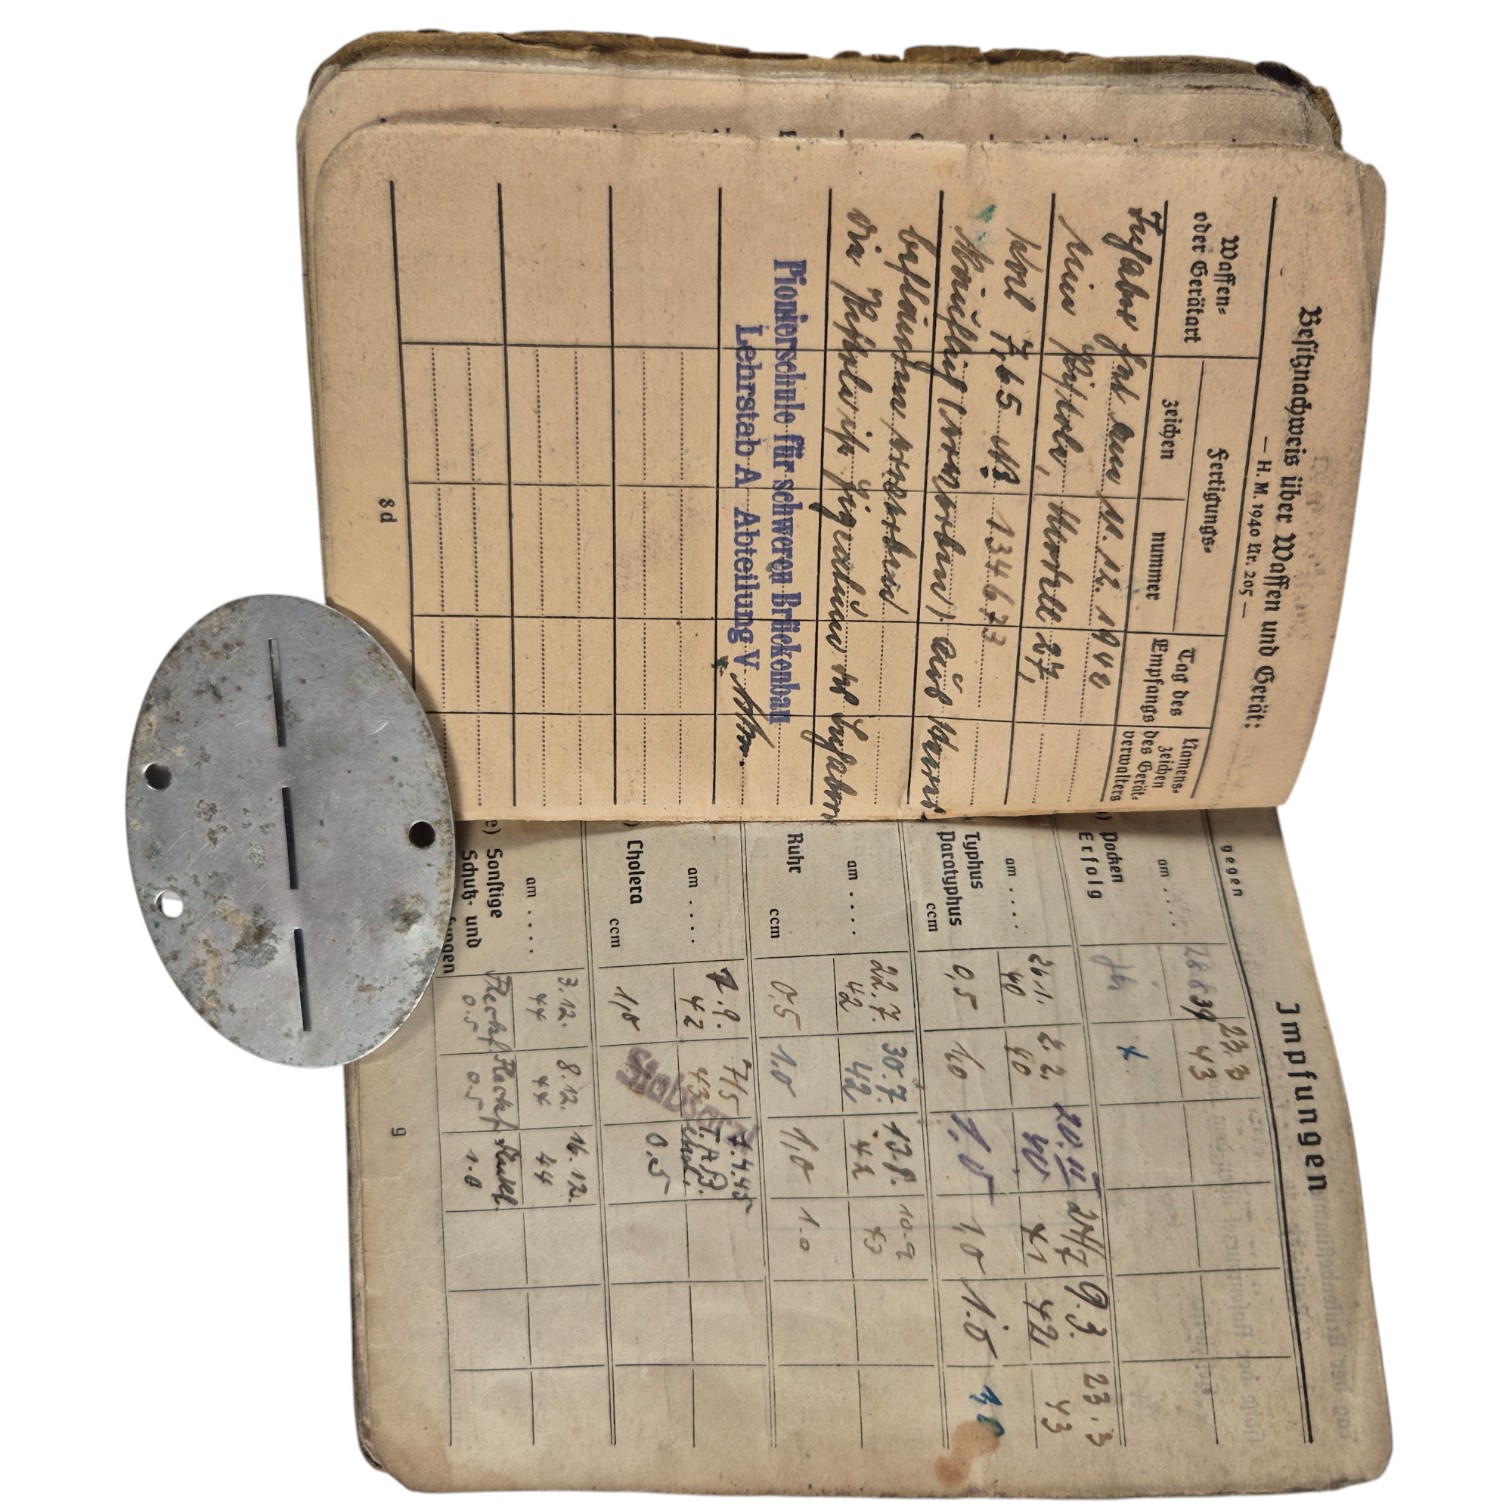 Besitznachweis über Waffen und Gerät:
— H. M. 1940 Nr. 205 —
Waffen-
oder Gerätart
Fertigungs-
zeichen
nummer
Tag des
Empfangs
Namens-
zeichen
des Gerät-
verwalters
Inhaber hat am 11.12.1942
eine Pistole, Modell 27,
Kal. 7,65 Nr 134673
käuflich erworben
die Pistole ist Eigentum des Inhabers
Pionierschule für schweren Brückenbau
Lehrstab A Abteilung V
8d
Impfungen
gegen
Pocken
Erfolg
am . . . .
28.8.39
23.3
43
+
Typhus
Paratyphus
ccm
am . . . .
26.1.
40
2.2.
40
20. II
40
24/7
41
9.3.
42
23.3
43
0,5
1,0
1,0
1,0
1.0
1,0
Ruhr
ccm
am . . . .
22.7.
42
30.7.
42
13.8.
42
10.9
43
0,5
1.0
1,0
1.0
) Cholera
ccm
am . . . .
7.9.
42
7/5
43
7.4.45
T.A.B.
Chol.
1,0
0.5
Stabsarzt
e) Sonstige
Schutz- und
am . . . .
3.12.
44
8.12.
44
16.12.
44
Fleckf
0.5
Fleckf
0.5
Fleckf.
1.0
9